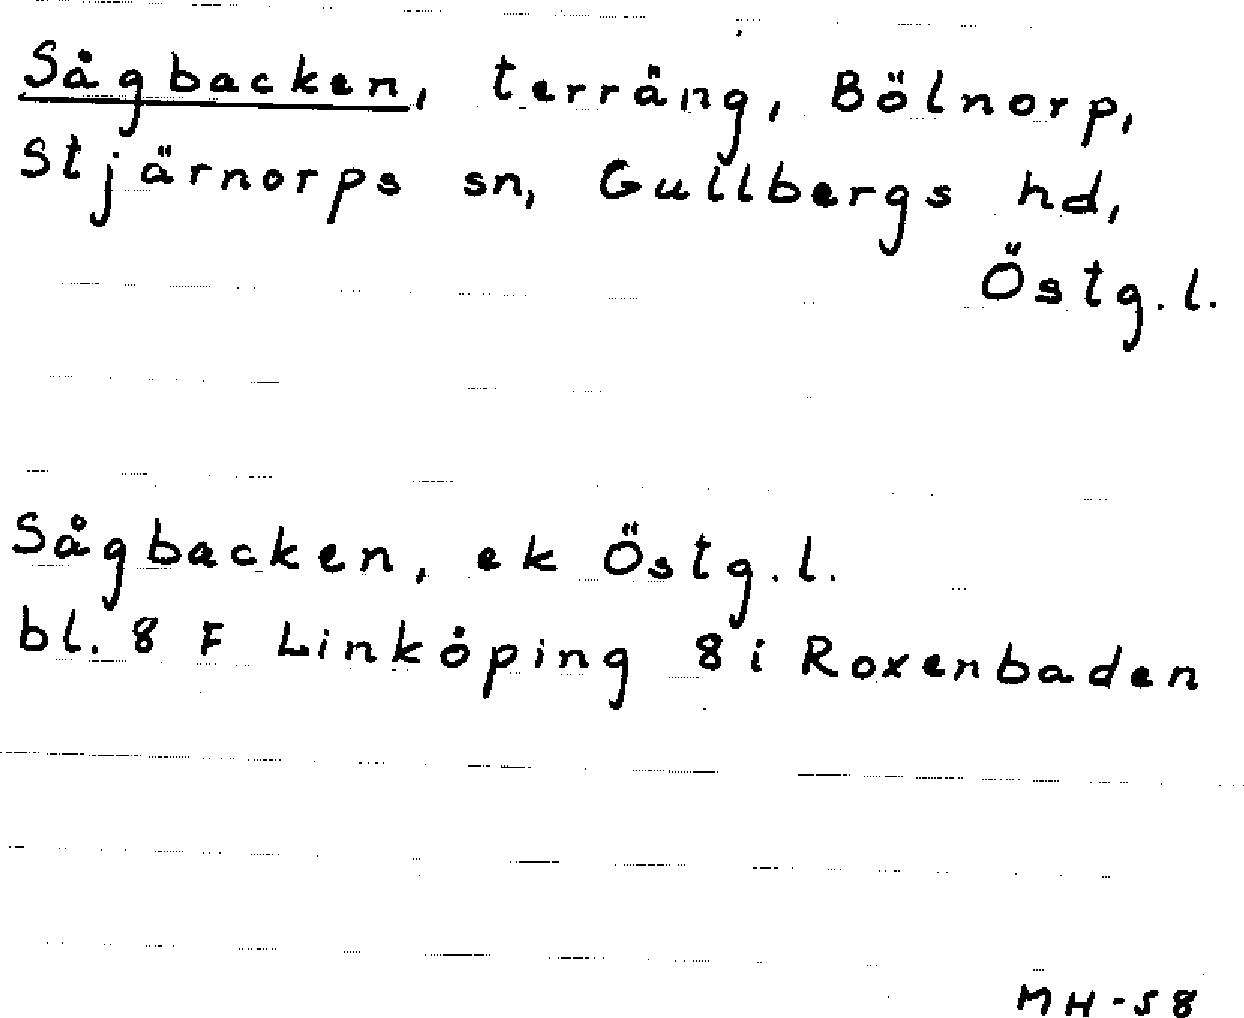 Sågbacken, terräng, Bölnorp,
Stjärnorps sn, Gullbergs hd,
Östg.l.
Sågbacken, ek Östg.l.
bl. 8 F Linköping 8 i Roxenbaden
MH-58